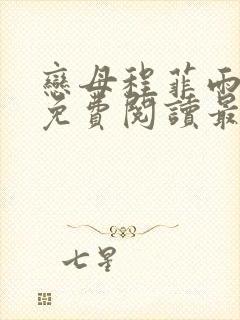 戀母程菲雨
免費閱讀最
七星